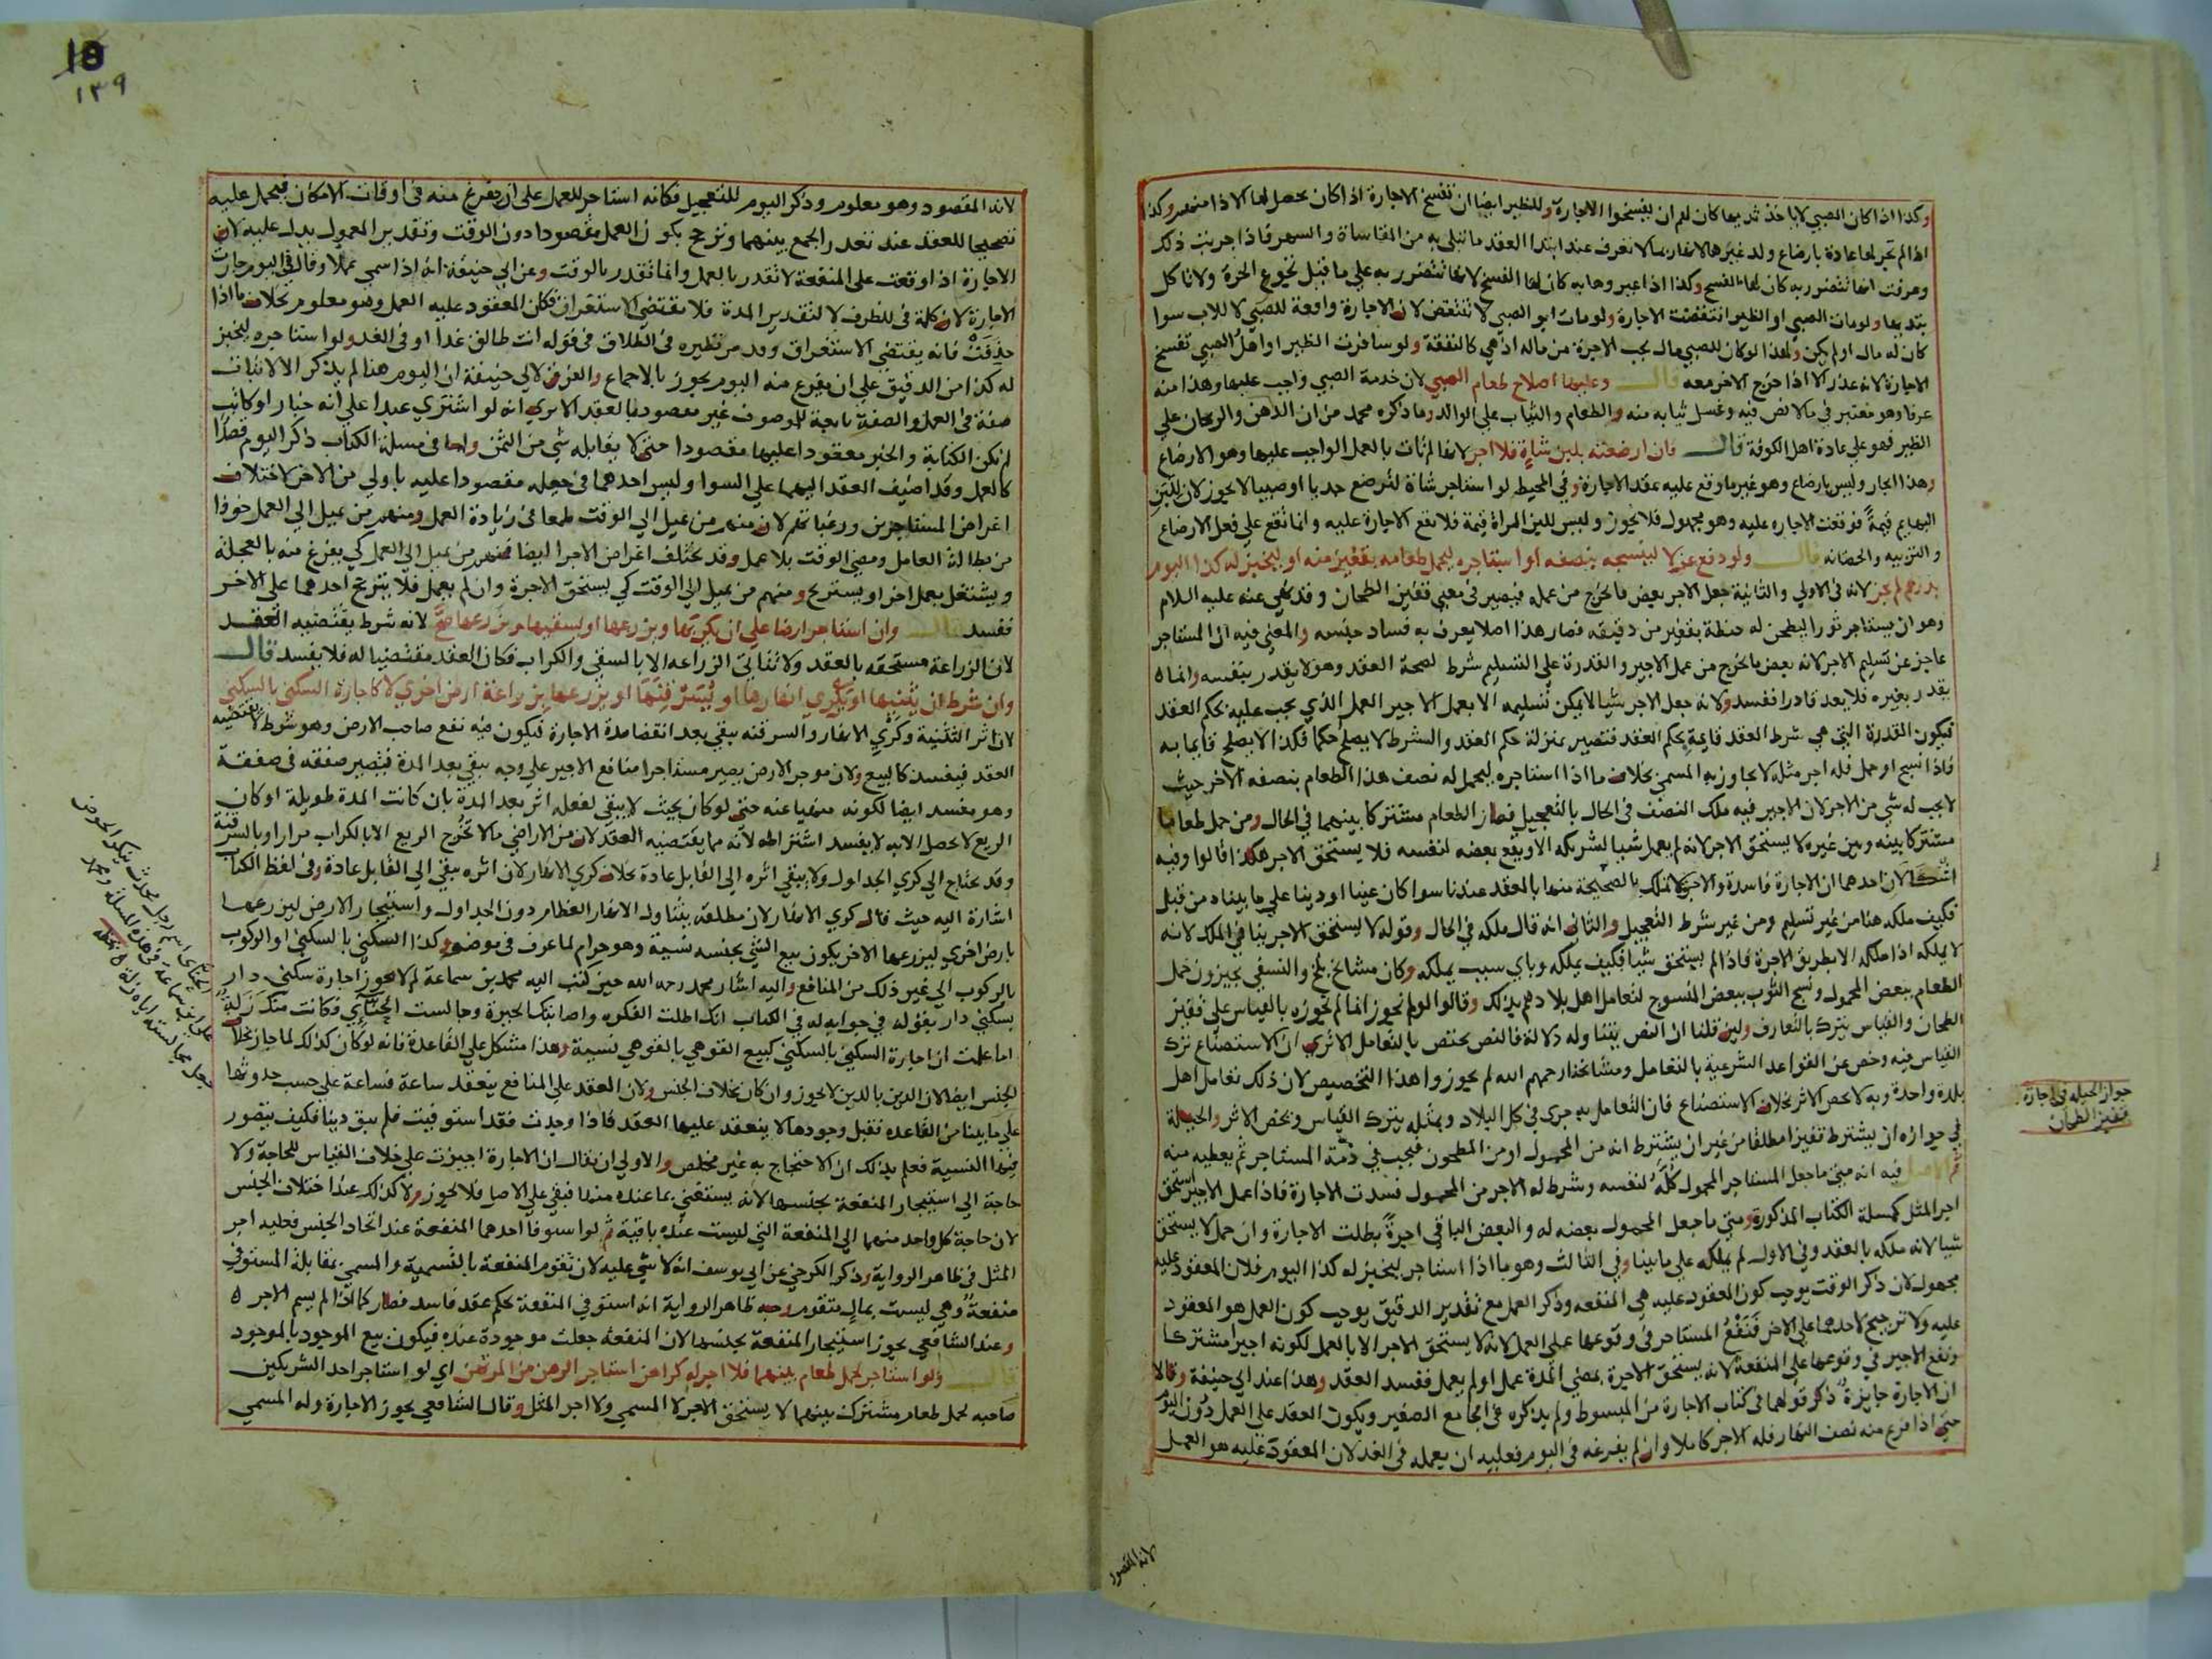 وكذا اذا كان الصبي لا ياخذ ثديها كان لهم ان يفسخوا الاجارة وللظير ايضا ان تفسخ الاجارة اذا كان يحصل لها الاذا منهم وكذا
اذا لم تجر لها عادة بارضاع ولد غيرها لانها ربما لا تعرف عند ابتدا العقد ما تبتلي به من المقاساة والسهر فاذا جربت ذلك
وعرفت انها تتضرر به كان لها الفسخ وكذا اذا عيروها به كان لها الفسخ لانها تتضرر به على ما قيل تجوع الحرة ولا تاكل
بثدييها ولو مات الصبي او الظير انتقضت الاجارة ولو مات ابو الصبي لا تنتقض لان الاجارة واقعة للصبي لا للاب سوا
كان له مال او لم يكن ولهذا لو كان للصبي مال يجب الاجرة من ماله اذ هي كالنفقة ولو سافرت الظير او اهل الصبي تفسخ
الاجارة لانه عذر الا اذا خرج الاخر معه قال وعليها اصلاح طعام الصبي لان خدمة الصبي واجب عليها وهذا منه
عرفا وهو معتبر في ما لا نص فيه وغسل ثيابه منه والطعام والثياب على الوالد وما ذكره محمد من ان الدهن والريحان على
الظير فهو على عادة اهل الكوفة قال فان ارضعته بلبن شاة فلا اجر لانها لم تات بالعمل الواجب عليها وهو الارضاع
وهذا ايجار وليس بارضاع وهو غير ما وقع عليه عقد الاجارة وفي المحيط لو استاجر شاة لترضع جديا او صبيا لا يجوز لان للبن
البهايم قيمة فوقعت الاجاره عليه وهو مجهول فلا يجوز وليس للبن المراة قيمة فلا تقع الاجارة عليه وانما تقع على فعل الارضاع
والتربيه والحضانه قال ولو دفع غزلا لينسجه بنصفه او استاجره ليحمل طعامه بقفيز منه او ليخبز له كذا اليوم
بدرهم لم يجز لانه في الاولى والثانية جعل الاجر بعض ما يخرج من عمله فيصير في معنى قفيز الطحان وقد نهي عنه عليه السلام
وهو ان يستاجر ثورا ليطحن له حنطة بقفيز من دقيقه فصار هذا اصلا يعرف به فساد جنسه والمعنى فيه ان المستاجر
عاجز عن تسليم الاجر لانه بعض ما يخرج من عمل الاجير والقدرة على التسليم شرط لصحة العقد وهو لا يقدر بنفسه وانما
يقدر بغيره فلا يعد قادرا ففسد ولانه جعل الاجر شيا لا يمكن تسليمه الا بعمل الاجير العمل الذي يجب عليه بحكم العقد
فيكون القدرة التي هي شرط العقد قايمة بحكم العقد فتصير بمنزلة حكم العقد والشرط لا يصلح حكما فكذا لا يصلح قايما به
فاذا نسج او حمل فله اجر مثله لا يجاوز به المسمى بخلاف ما اذا استاجره ليحمل له نصف هذا الطعام بنصفه الاخر حيث
لا يجب له شي من الاجر لان الاجير فيه ملك النصف في الحال بالتعجيل فصار الطعام مشتركا بينهما في الحال ومن حمل طعاما
مشتركا بينه وبين غيره لا يستحق الاجر لانه لم يعمل شيا لشريكه الا ويقع بعضه لنفسه فلا يستحق الاجر هكذا قالوا وفيه
اشكالان احدهما ان الاجارة فاسدة والاجرة لا تملك بالصحيحة منها بالعقد عندنا سوا كان عينا او دينا على ما بيناه من قبل
فكيف ملكه هنا من غير تسليم ومن غير شرط التعجيل والثاني انه قال ملكه في الحال وقوله لا يستحق الاجر ينافي الملك لانه
لا يملكه اذا ملكه الا بطريق الاجرة فاذا لم يستحق شيا فكيف يملكه وباي سبب يملكه وكان مشايخ بلخ والنسفي يجيزون حمل
الطعام ببعض المحمول ونسج الثوب ببعض المنسوج لتعامل اهل بلادهم بذلك وقالوا لو لم نجوز انما لم نجوزه بالقياس على قفيز
الطحان والقياس يترك بالتعارف ولين قلنا ان النص يتناوله دلالة فالنص يختص بالتعامل الا ترى ان الاستصناع ترك
القياس فيه وخص عن القواعد الشرعية بالتعامل ومشايخنا رحمهم الله لم يجوزوا هذا التخصيص لان ذلك تعامل اهل
بلدة واحدة وبه لا يخص الاثر بخلاف الاستصناع فان التعامل به جرى في كل البلاد وبمثله يترك القياس ويخص الاثر والحيلة
في جوازه ان يشترط قفيزا مطلقا من غير ان يشترط انه من المحمول او من المطحون فيجب في ذمة المستاجر ثم يعطيه منه
ثم الاصل فيه انه متى ما جعل المستاجر المحمول كله لنفسه وشرط له الاجر من المحمول فسدت الاجارة فاذا عمل الاجير استحق
اجر المثل كمسلة الكتاب المذكورة ومتى ما جعل المحمول بعضه له والبعض الباقي اجرة بطلت الاجارة وان حمل لا يستحق
شيا لانه ملكه بالعقد وفي الاول لم يملكه على ما بينا وفي الثالث وهو ما اذا استاجر ليخبز له كذا اليوم فلان المعقود عليه
مجهول لان ذكر الوقت يوجب كون المعقود عليه هي المنفعه وذكر العمل مع تقدير الدقيق يوجب كون العمل هو المعقود
عليه ولا ترجيح لاحدهما على الاخر فنفع المستاجر في وقوعها على العمل لانه لا يستحق الاجر الا بالعمل لكونه اجيرا مشتركا
ونفع الاجير في وقوعها على المنفعة لانه يستحق الاجرة بمضي المدة عمل او لم يعمل ففسد العقد وهذا عند ابي حنيفة وقالا
ان الاجارة جايزة ذكر قولهما في كتاب الاجارة من المبسوط ولم يذكره في الجامع الصغير ويكون العقد على العمل دون اليوم
حتى اذا فرغ منه نصف النهار فله الاجر كاملا وان لم يفرغه في اليوم فعليه ان يعمله في الغد لان المعقود عليه هو العمل
لانه المقصود
جواز الحيله في اجارة
قفيز الطحان
10
١٣٩
لانه المقصود وهو معلوم وذكر اليوم للتعجيل فكانه استاجر للعمل على ان يفرغ منه في اوقات الامكان فيحمل عليه
تصحيحا للعقد عند تعذر الجمع بينهما وترجح بكون العمل مقصودا دون الوقت وتقدير المعمول يدل عليه لان
الاجارة اذا وقعت على المنفعة لا تقدر بالعمل وانما تقدر بالوقت وعن ابي حنيفة انه اذا سمى عملا وقال في اليوم جازت
الاجارة لان كلمة في للظرف لا لتقدير المدة فلا يقتضي الاستغراق فكان المعقود عليه العمل وهو معلوم بخلاف ما اذا
حذفت فانه يقتضي الاستغراق وقد مر نظيره في الطلاق في قوله انت طالق غدا او في الغد ولو استاجره ليخبز
له كذا من الدقيق على ان يفرغ منه اليوم يجوز بالاجماع والفرق لابي حنيفة ان اليوم هنا لم يذكر الا لاثبات
صفة في العمل والصفة تابعة للموصوف غير مقصود بالعقد الا يرى انه لو اشترى عبدا على انه خباز او كاتب
لم تكن الكتابة والخبز معقودا عليهما مقصودا حتى لا يقابله شي من الثمن واما في مسلة الكتاب ذكر اليوم قصدا
كالعمل وقد اضيف العقد اليهما على السوا وليس احدهما في جعله مقصودا عليه باولى من الاخر لاختلاف
اغراض المستاجرين ورغباتهم لان منهم من يميل الى الوقت طمعا في زيادة العمل ومنهم من يميل الى العمل خوفا
من بطالة العامل ومضي الوقت بلا عمل وقد تختلف اغراض الاجرا ايضا فمنهم من يميل الى العمل كي يفرغ منه بالعجلة
ويشتغل بعمل اخر او يستريح ومنهم من يميل الى الوقت كي يستحق الاجرة وان لم يعمل فلا يترجح احدهما على الاخر
ففسد قال وان استاجر ارضا على ان يكريها ويزرعها او يسقيها ويزرعها صح لانه شرط يقتضيه العقد
لان الزراعة مستحقه بالعقد ولا تتاتى الزراعه الا بالسقي والكراب فكان العقد مقتضيا له فلا يفسد قال
وان شرط ان يثنيها او يكري انهارها او يسرقنها او يزرعها بزراعة ارض اخرى لا كاجارة السكنى بالسكنى
لان اثر التثنية وكري الانهار والسرقنه يبقى بعد انقضا مدة الاجارة فيكون فيه نفع صاحب الارض وهو شرط لا يقتضيه
العقد فيفسد كالبيع ولان موجر الارض يصير مستاجرا منافع الاجير على وجه يبقى بعد المدة فيصير صفقه في صفقة
وهو مفسد ايضا لكونه منهيا عنه حتى لو كان بحيث لا يبقى لفعله اثر بعد المدة بان كانت المدة طويلة او كان
الريع لا يحصل الا به لا يفسد اشتراطه لانه مما يقتضيه العقد لان من الاراضي ما لا تخرج الريع الا بالكراب مرارا وبالسرقنة
وقد يحتاج الى كري الجداول ولا يبقى اثره الى القابل عادة بخلاف كري الانهار لان اثره يبقى الى القابل عادة وفي لفظ الكتاب
اشارة اليه حيث قال كري الانهار لان مطلقه يتناول الانهار العظام دون الجداول واستيجار الارض ليزرعها
بارض اخرى ليزرعها الاخر يكون بيع الشي بجنسه نسية وهو حرام لما عرف في موضعه وكذا السكنى بالسكنى او الركوب
بالركوب الى غير ذلك من المنافع واليه اشار محمد رحمه الله حين كتب اليه محمد بن سماعة لم لا يجوز اجارة سكنى دار
بسكنى دار بقوله في جوابه له في الكتاب انك اطلت الفكره واصابتك الحيرة وجالست الحنائي فكانت منك زلة
اما علمت ان اجارة السكنى بالسكنى كبيع القوهي بالقوهي نسية وهذا مشكل على القاعدة فانه لو كان كذلك لما جاز بخلاف
الجنس ايضا لان الدين بالدين لا يجوز وان كان بخلاف الجنس ولان العقد على المنافع ينعقد ساعة فساعة على حسب حدوثها
على ما بينا من القاعده فقبل وجودها لا ينعقد عليها العقد فاذا وجدت فقد استوفيت فلم يبق دينا فكيف يتصور
فيها النسية فعلم بذلك ان الاحتجاج به غير مخلص والاولى ان يقال ان الاجارة اجيزت على خلاف القياس للحاجة ولا
حاجة الى استيجار المنفعة بجنسها لانه يستغني بما عنده منها فبقي على الاصل فلا يجوز ولا كذلك عند اختلاف الجنس
لان حاجة كل واحد منهما الى المنفعة التي ليست عنده باقية ثم لو استوفا احدهما المنفعة عند اتحاد الجنس فعليه اجر
المثل في ظاهر الرواية وذكر الكرخي عن ابي يوسف انه لا شي عليه لان تقوم المنفعة بالتسمية والمسمى بمقابلة المستوفى
منفعة وهي ليست بمال متقوم وجه ظاهر الرواية انه استوفى المنفعة بحكم عقد فاسد فصار كما اذا لم يسم الاجر
وعند الشافعي يجوز استيجار المنفعة بجنسها لان المنفعه جعلت موجودة عنده فيكون بيع الموجود بالموجود
قال ولو استاجر لحمل طعام بينهما فلا اجر له كراهن استاجر الرهن من المرتهن اي لو استاجر احد الشريكين
صاحبه لحمل طعام مشترك بينهما لا يستحق الاجر لا المسمى ولا اجر المثل وقال الشافعي يجوز الاجارة وله المسمى